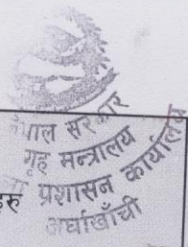 नेपाल सरकार
गृह मन्त्रालय
प्रशासन कार्यालय
अर्घाखाँची
हरु